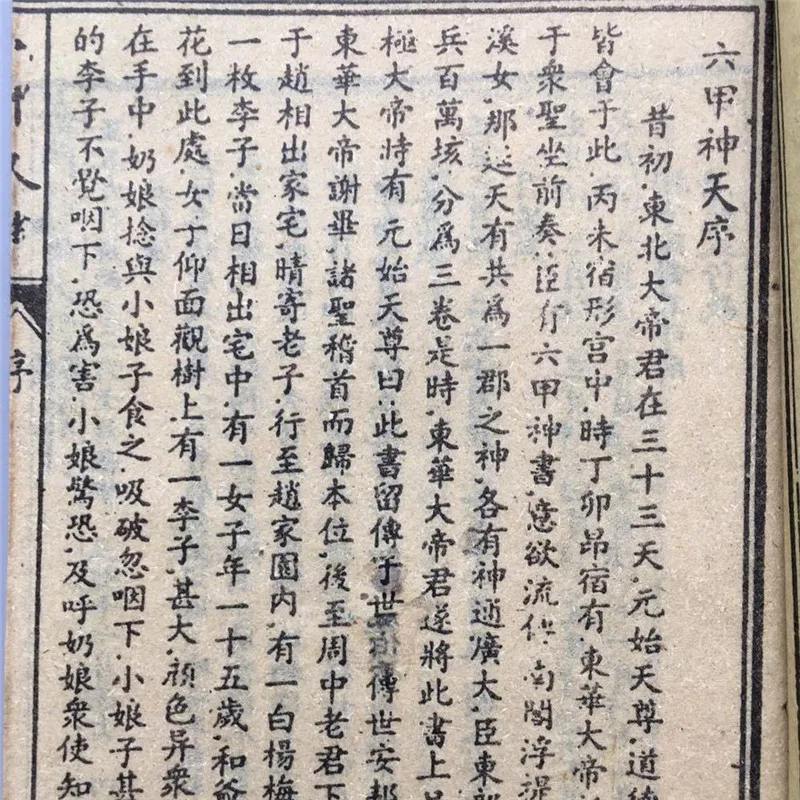 六甲神天序
昔初東北大帝君在三十三天元始天尊道
皆會于此丙未宿形宮中時丁卯昴宿有東華大帝
于衆聖坐前奏臣有六甲神書意欲流傳南閻浮提
溪女那延天有共爲一郡之神各有神通廣大臣東
兵百萬垓分爲三卷是時東華大帝君遂將此書上
極大帝時有元始天尊曰此書留傳于世傳世安邦
東華大帝謝畢諸聖稽首而歸本位後至周中老君下
于趙相出家宅晴寄老子行至趙家園內有一白楊梅
一枚李子當日相出宅中有一女子年一十五歲和爺
花到此處女子仰面觀樹上有一李子甚大顔色异衆
在手中奶娘捻與小娘子食之吸破忽咽下小娘子甚
的李子不覺咽下恐爲害小娘驚恐及呼奶娘衆使知
序